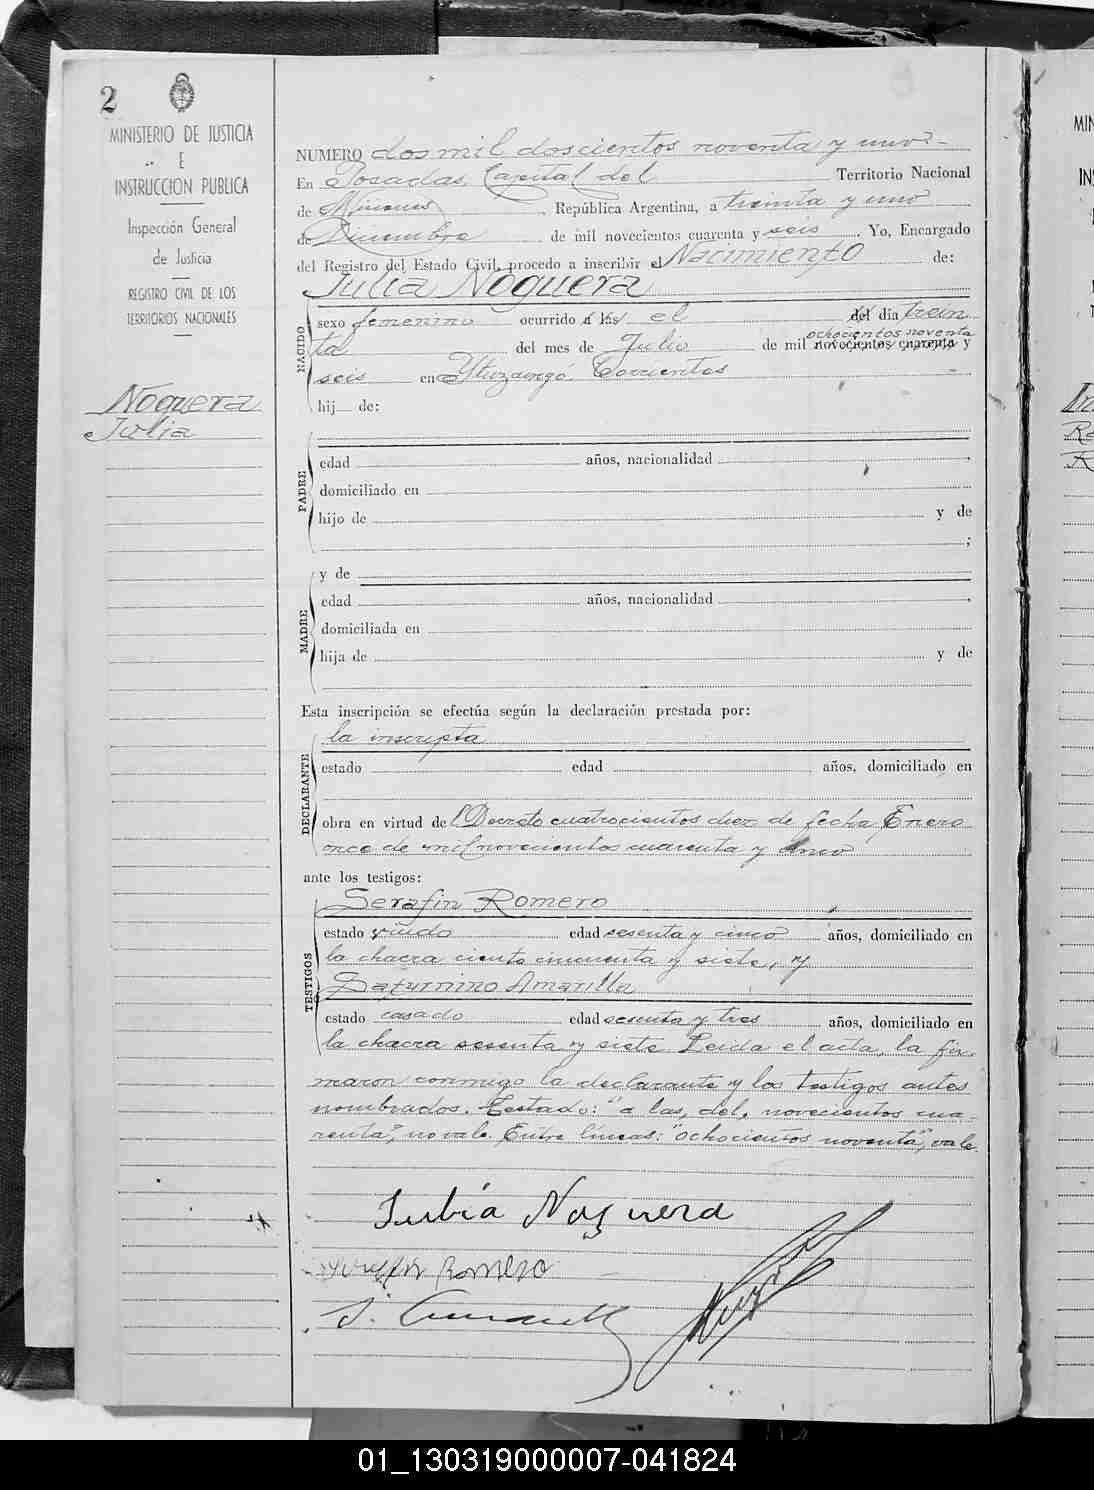 2
MINISTERIO DE JUSTICIA
E
INSTRUCCION PUBLICA
Inspección General
de Justicia
REGISTRO CIVIL DE LOS
TERRITORIOS NACIONALES
Noguera
Julia
NUMERO dos mil doscientos noventa y uno
En Posadas, Capital del Territorio Nacional
de Misiones, República Argentina, a treinta y uno
de Diciembre de mil novecientos cuarenta y seis. Yo, Encargado
del Registro del Estado Civil, procedo a inscribir el Nacimiento de:
Julia Noguera
NACIDO
sexo femenino ocurrido á las el del día trein
ochocientos noventa
ta del mes de Julio de mil novecientos cuarenta y
seis en Ytuzaingó, Corrientes
hij de:
PADRE
edad años, nacionalidad
domiciliado en
hijo de y de
;
MADRE
y de
edad años, nacionalidad
domiciliada en
hija de y de
Esta inscripción se efectúa según la declaración prestada por:
DECLARANTE
la inscripta
estado edad años, domiciliado en
obra en virtud del Decreto cuatrocientos diez de fecha Enero
once de mil novecientos cuarenta y cinco
ante los testigos:
TESTIGOS
Serafin Romero
estado viudo edad sesenta y cinco años, domiciliado en
la chacra ciento cincuenta y siete, y
Saturnino Amarilla
estado casado edad sesenta y tres años, domiciliado en
la chacra sesenta y siete. Leida el acta, la fir
maron conmigo la declarante y los testigos antes
nombrados. Testado: "a las, del, novecientos cua-
renta", no vale. Entre líneas: "ochocientos noventa", vale.
Julia Noguera
Serafin Romero
MIN
IN
01_130319000007-041824